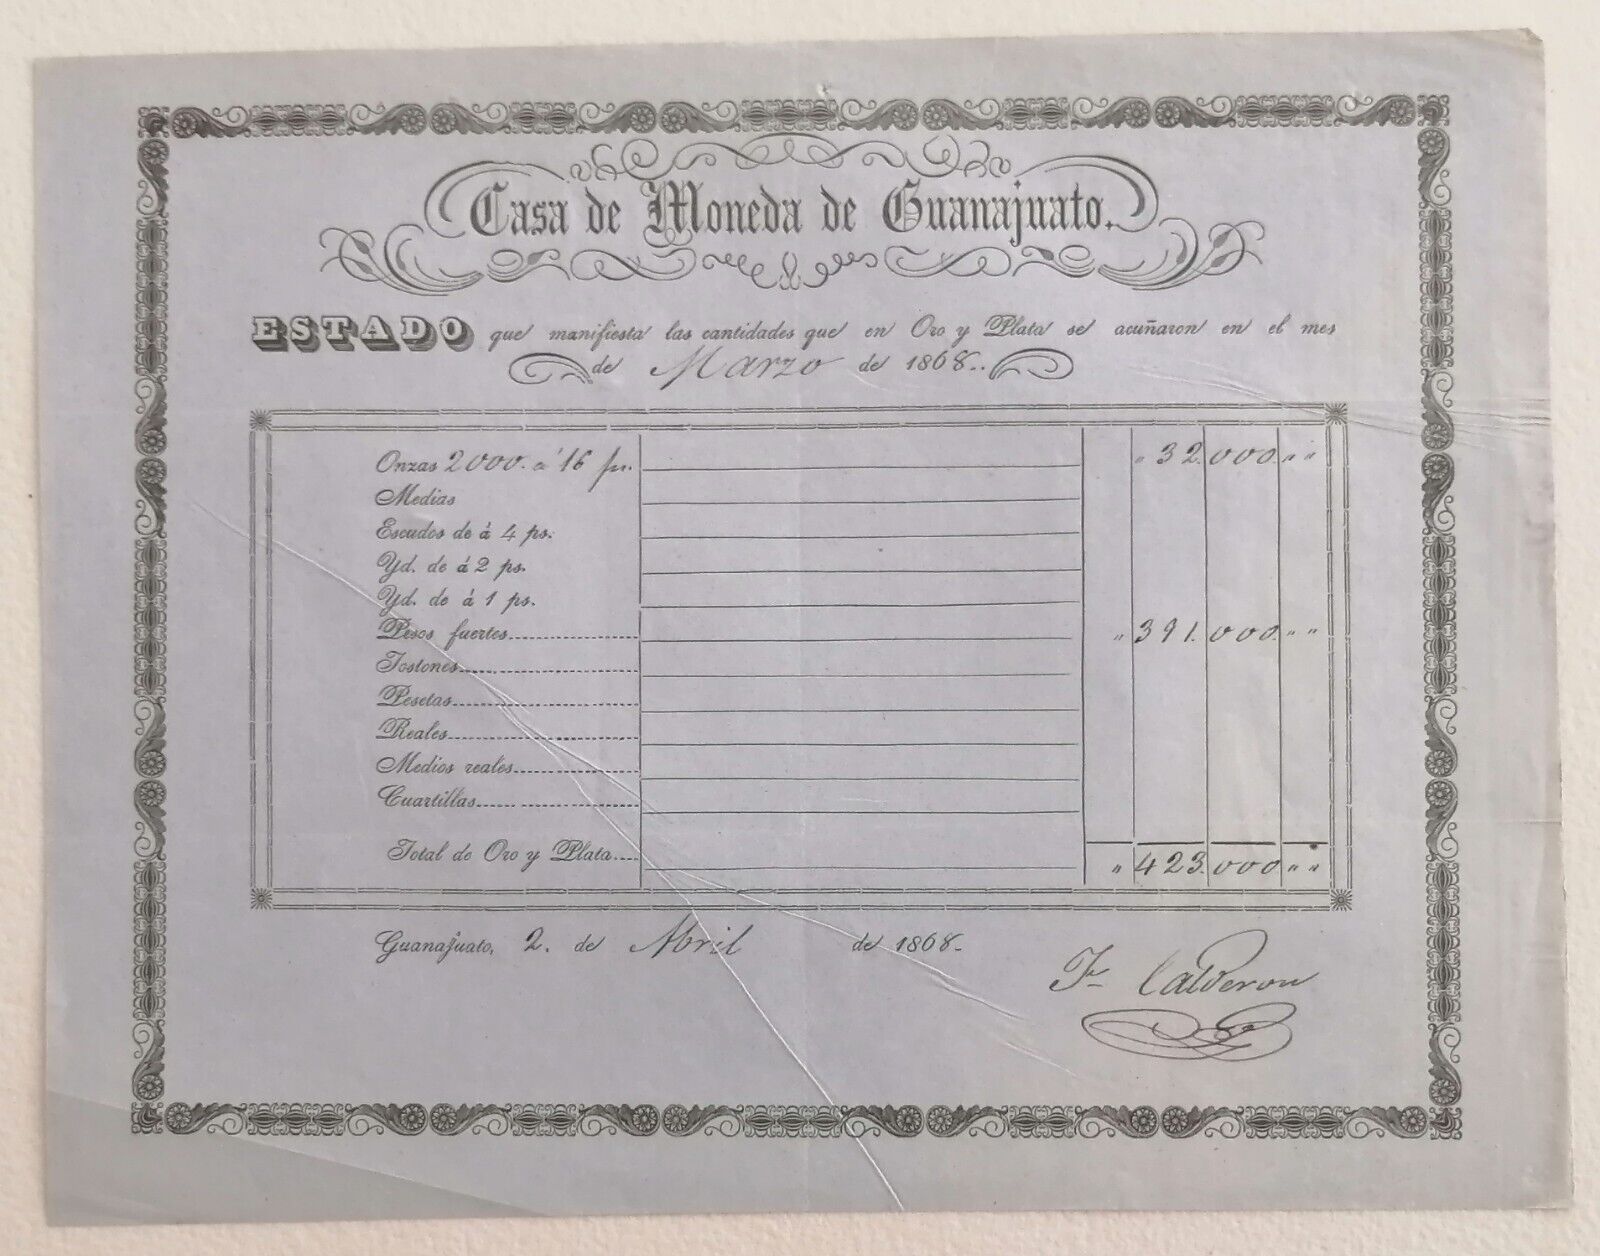 Casa de Moneda de Guanajuato.
ESTADO que manifiesta las cantidades que en Oro y Plata se acuñaron en el mes
de Marzo de 1868..
Onzas 2000. á 16 ps. " 32.000. " "
Medias
Escudos de á 4 ps.
Yd. de á 2 ps.
Yd. de á 1 ps.
Pesos fuertes " 391.000. " "
Tostones
Pesetas
Reales
Medios reales
Cuartillas
Total de Oro y Plata " 423.000 " "
Guanajuato, 2. de Abril de 1868.
Calderon